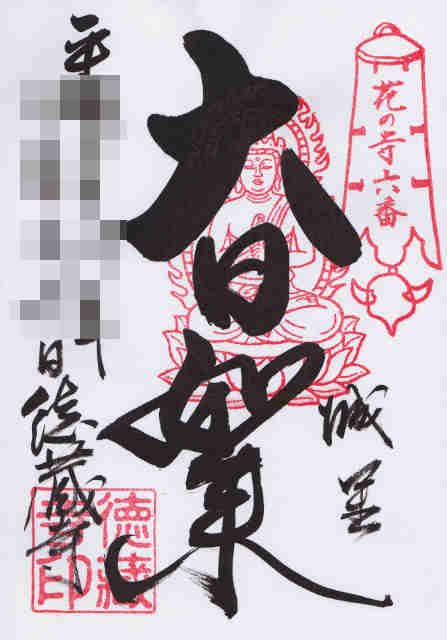 花の寺六番
城里
大日如来
平
日 徳蔵寺
徳藏寺印